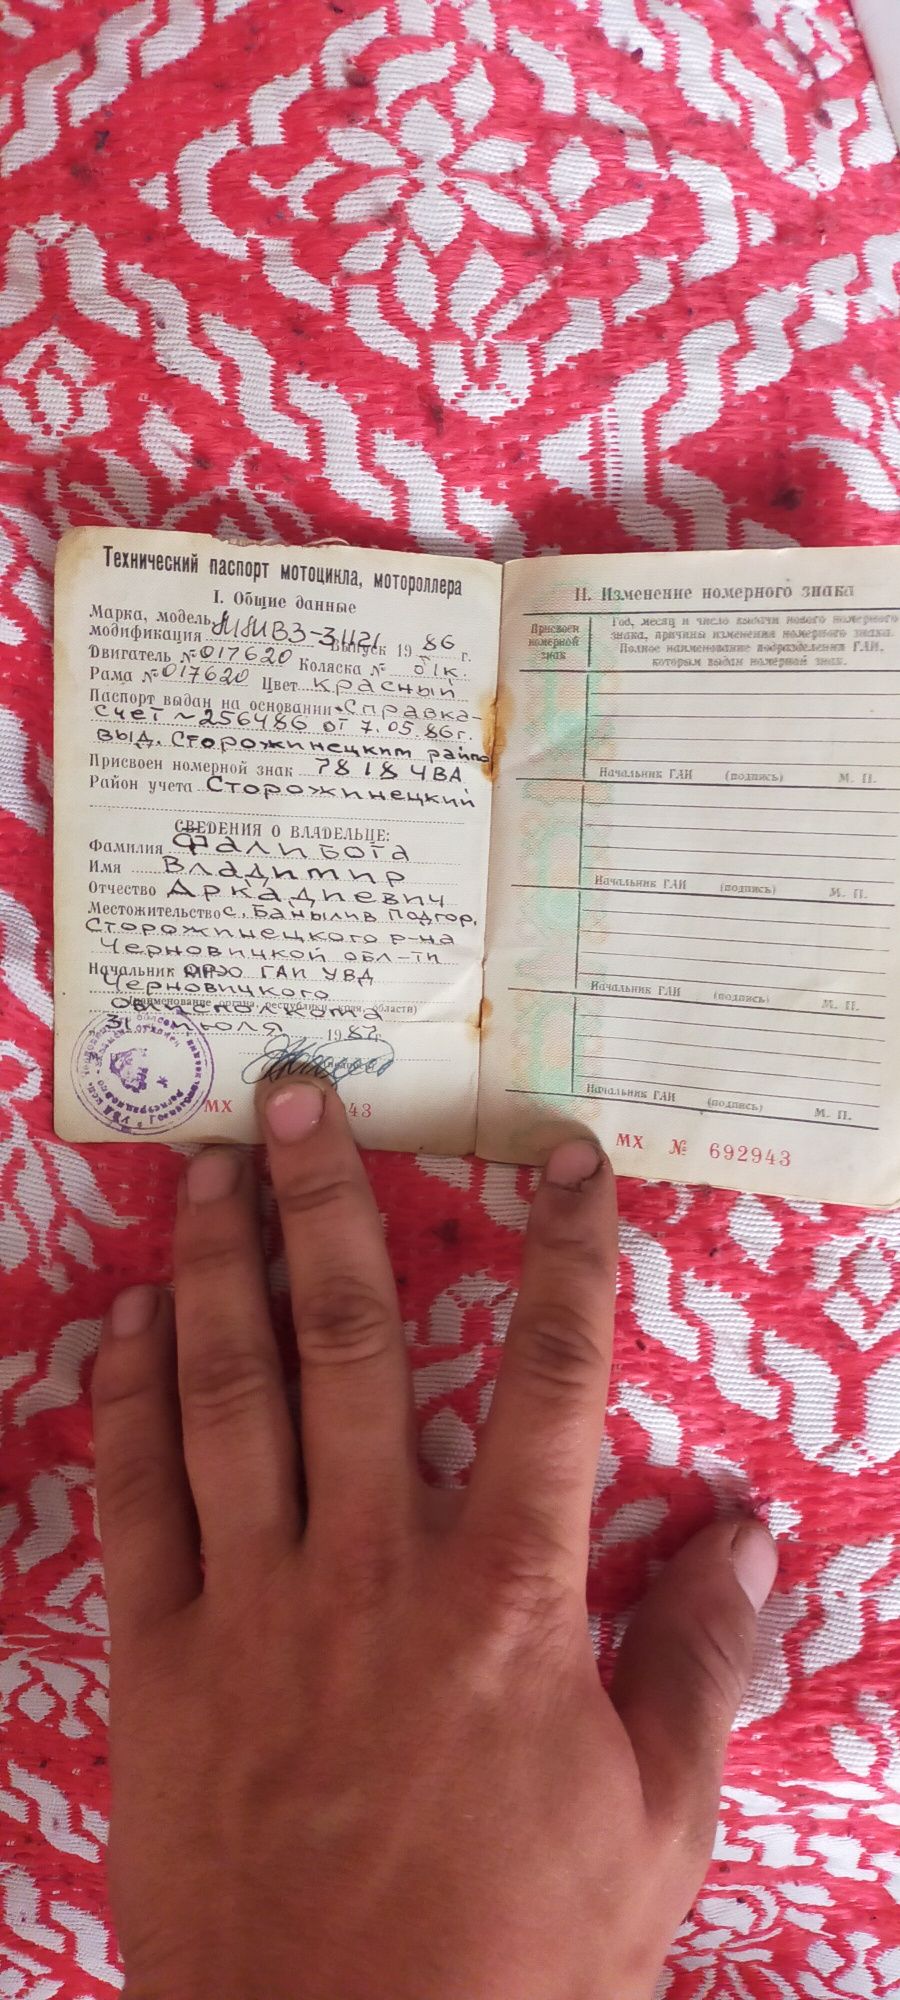 Технический паспорт мотоцикла, мотороллера
I. Общие данные
Марка, модель,
модификация ММВЗ-3.1121 Выпуск 1986 г.
Двигатель № 017620 Коляска № б/к.
Рама № 017620 Цвет красный
Паспорт выдан на основании Справка-
счет № 256486 от 7.05.86г.
выд. Сторожинецким райпо
Присвоен номерной знак 7818 ЧВА
Район учета Сторожинецкий
СВЕДЕНИЯ О ВЛАДЕЛЬЦЕ:
Фамилия Фалибота
Имя Владимир
Отчество Аркадиевич
Местожительство с. Банылив Подгор.
Сторожинецкого р-на
Черновицкой обл-ти
Начальник МРЭО ГАИ УВД
Черновицкого
(наименование органа, республики, края, области)
облисполкома
31 июля 1987г.
(подпись)
МХ 43
II. Изменение номерного знака
Присвоен номерной знак
Год, месяц и число выдачи нового номерного
знака, причины изменения номерного знака.
Полное наименование подразделения ГАИ,
которым выдан номерной знак.
Начальник ГАИ (подпись) М. П.
Начальник ГАИ (подпись) М. П.
Начальник ГАИ (подпись) М. П.
Начальник ГАИ (подпись) М. П.
МХ № 692943